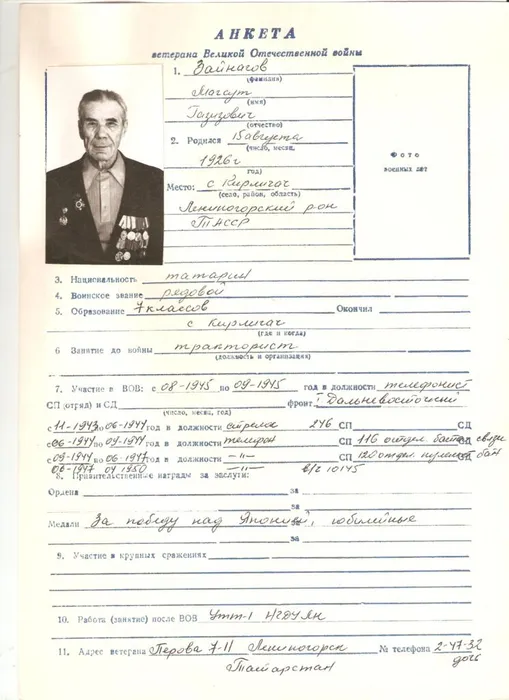 АНКЕТА
ветерана Великой Отечественной войны
1. Зайнагов
(фамилия)
Магсут
(имя)
Газизович
(отчество)
2. Родился 15 августа
(число, месяц,
1926 г
год)
Место: с Кирлигач
(село, район, область)
Лениногорский р-он
ТАССР
Фото
военных лет
3. Национальность татарин
4. Воинское звание рядовой
5. Образование 7 классов Окончил
с Кирлигач
(где и когда)
6 Занятие до войны тракторист
(должность и организация)
7. Участие в ВОВ: с 08-1945 по 09-1945 год в должности телефонист
СП (отряд) и СД фронт I Дальневосточный
(число, месяц, год)
с 11-1943 по 06-1944 год в должности стрелок 246 СП СД
с 06-1944 по 09-1944 год в должности телефон СП 116 отдел. батал. связи
с 09-1944 по 06-1947 год в должности -"- СП 120 отдел. бат
06-1947 04 1950 -"- в/ч 10145
8. Правительственные награды за заслуги:
Ордена за
за
Медали За победу над Японией, юбилейные
за
за
9. Участие в крупных сражениях
10. Работа (занятие) после ВОВ УТТ-1 НГДУ ЛН
11. Адрес ветерана Перова 7-11 Лениногорск № телефона 2-47-32
Татарстан дочь